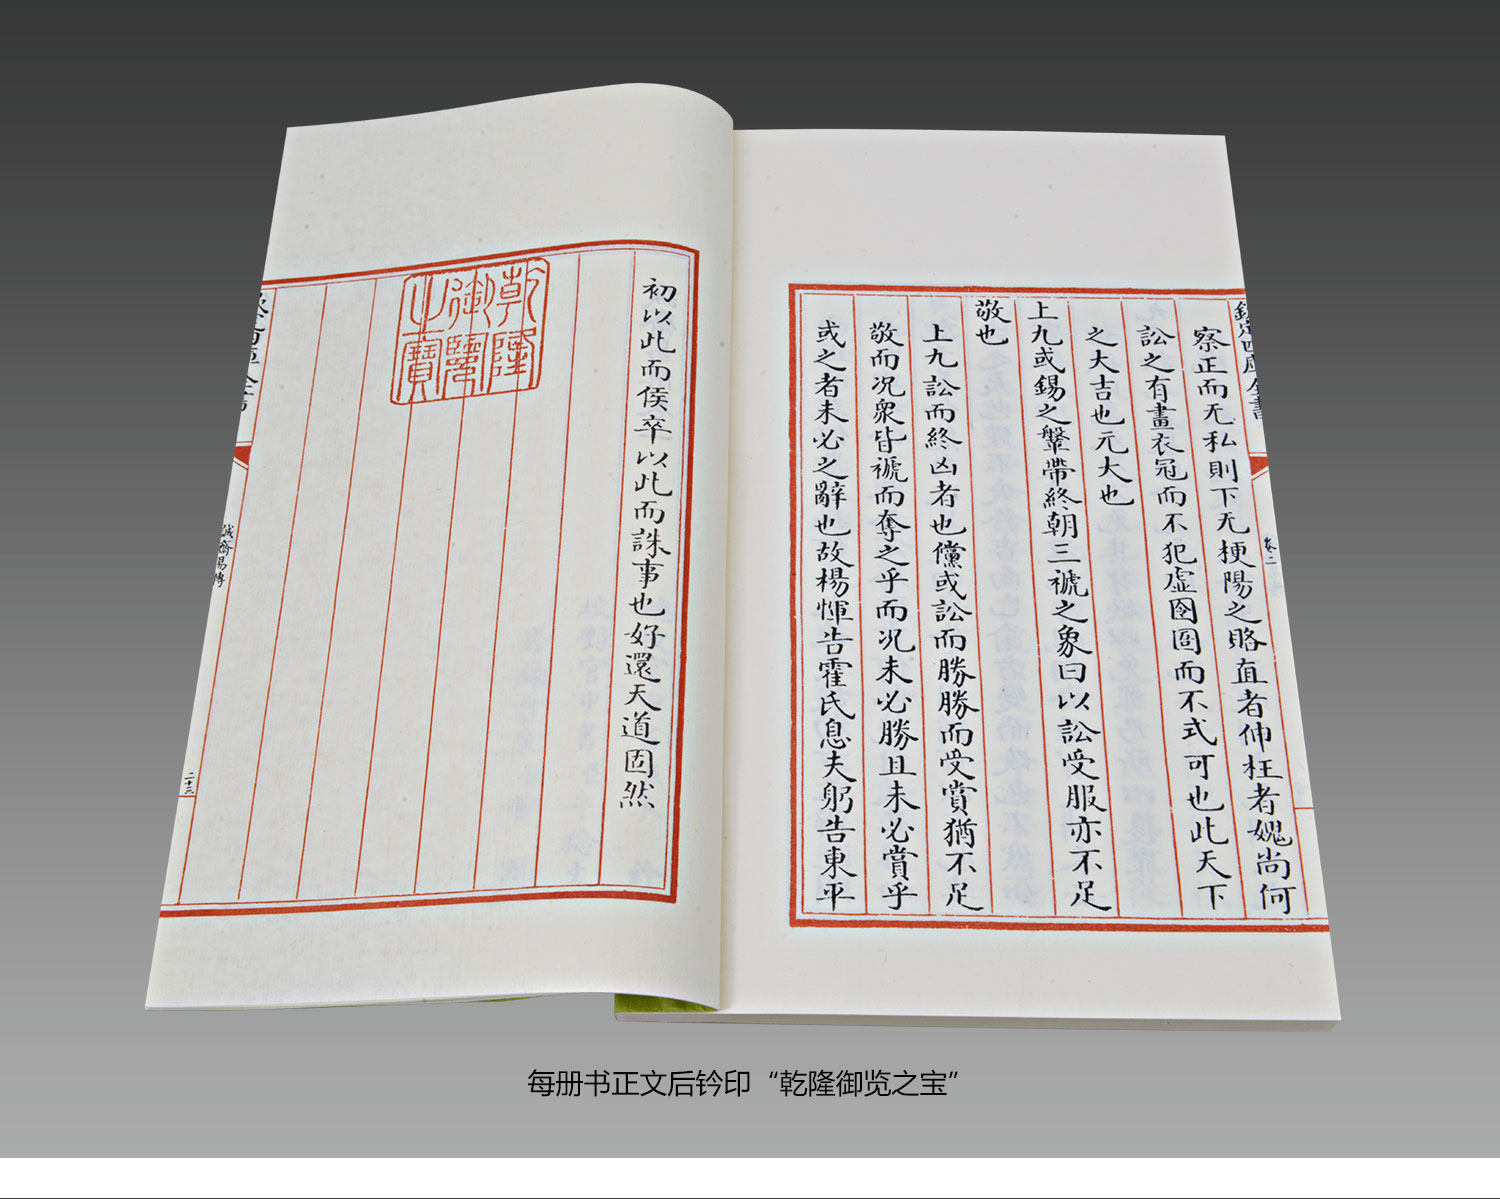 欽定四庫全書
卷二
察正而无私則下无梗陽之賂直者伸枉者媿尚何
訟之有畫衣冠而不犯虛囹圄而不式可也此天下
之大吉也元大也
上九或錫之鞶帶終朝三褫之象曰以訟受服亦不足
敬也
上九訟而終凶者也儻或訟而勝勝而受賞猶不足
敬而况衆皆褫而奪之乎而况未必勝且未必賞乎
或之者未必之辭也故楊惲告霍氏息夫躬告東平
初以此而侯卒以此而誅事也好還天道固然
乾隆御覽之寶
誠齋易傳
二十三
每册书正文后钤印“乾隆御览之宝”